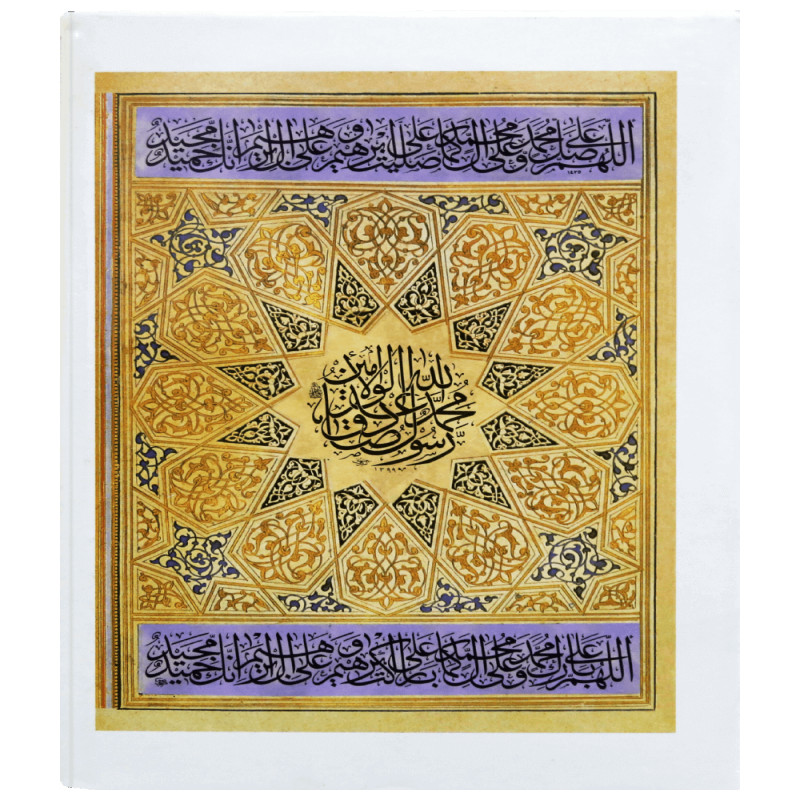 اللهم صل على محمد وعلى آل محمد كما صليت على إبراهيم وعلى آل إبراهيم إنك حميد مجيد
١٤٢٣
محمد رسول الله صادق الوعد الأمين
١٣٩٩
اللهم بارك على محمد وعلى آل محمد كما باركت على إبراهيم وعلى آل إبراهيم إنك حميد مجيد